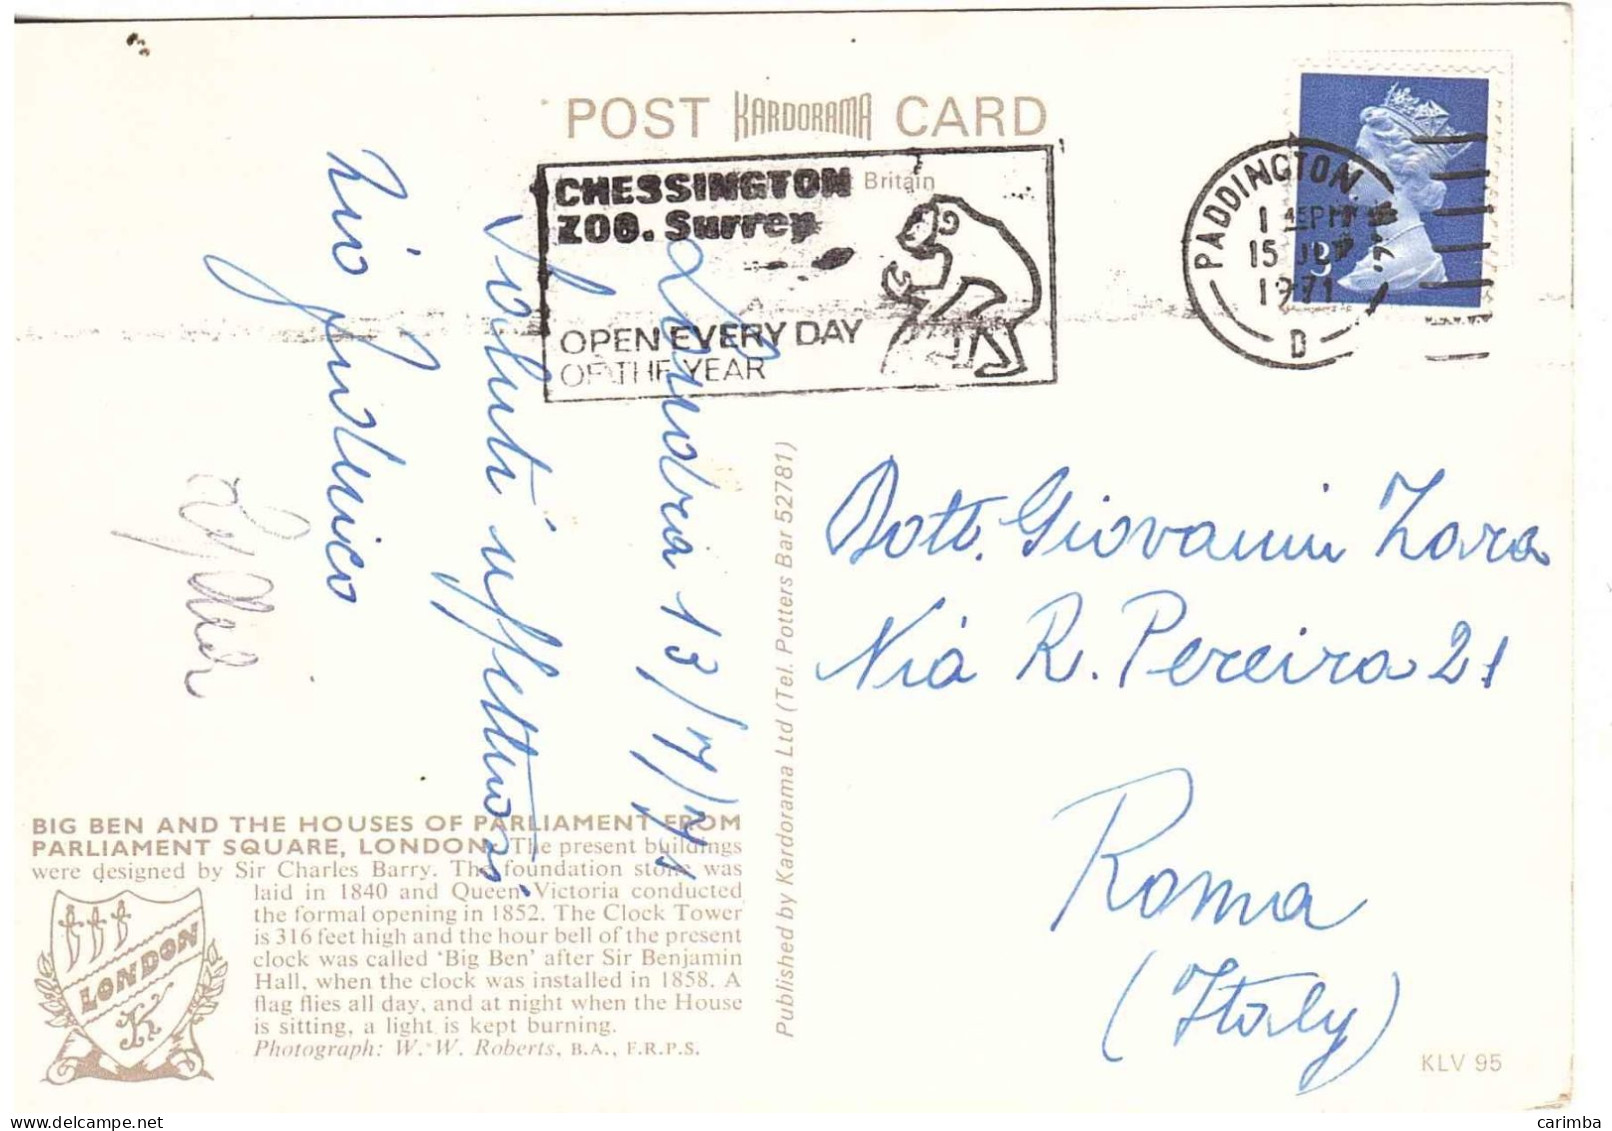 POST KARDORAMA CARD
Britain
CHESSINGTON
ZOO. Surrey
OPEN EVERY DAY
OF THE YEAR
PADDINGTON
15 JLY
1971
D
Londra 13/7/71
Saluti affettuosi
Zio Ludovico
Dott. Giovanni Zara
Via R. Pereira 21
Roma
(Italy)
Published by Kardorama Ltd (Tel. Potters Bar 52781)
BIG BEN AND THE HOUSES OF PARLIAMENT FROM
PARLIAMENT SQUARE, LONDON. The present buildings
were designed by Sir Charles Barry. The foundation stone was
laid in 1840 and Queen Victoria conducted
the formal opening in 1852. The Clock Tower
is 316 feet high and the hour bell of the present
clock was called 'Big Ben' after Sir Benjamin
Hall, when the clock was installed in 1858. A
flag flies all day, and at night when the House
is sitting, a light is kept burning.
Photograph: W. W. Roberts, B.A., F.R.P.S.
LONDON
K
KLV 95
carimba